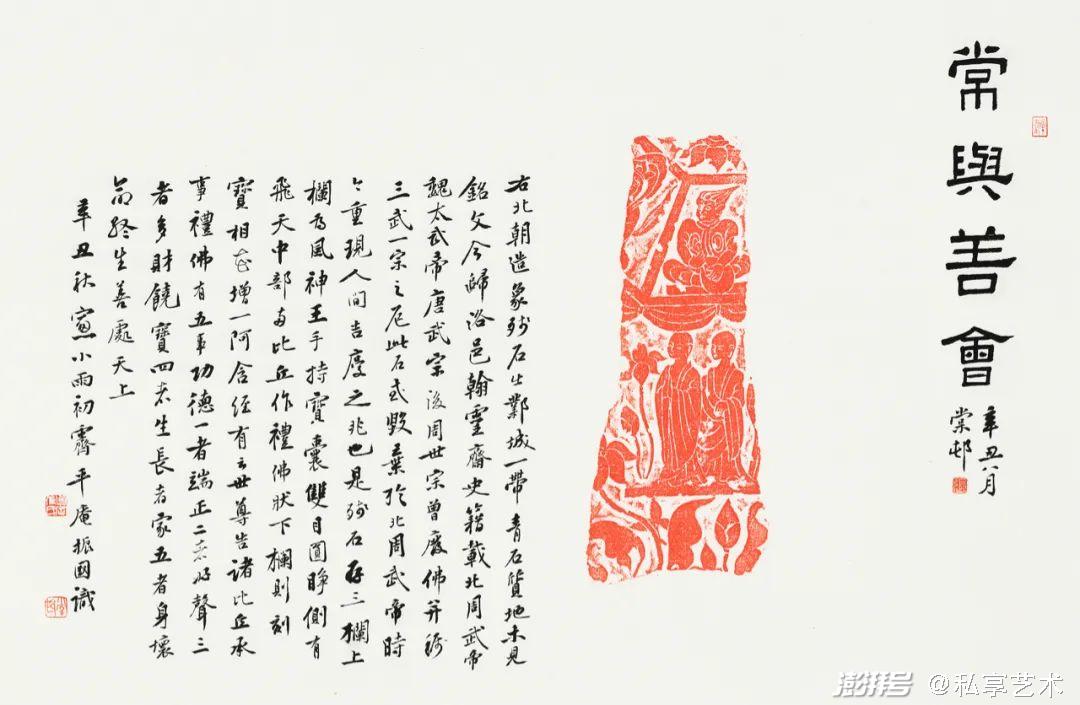 常與善會
辛丑八月
棠邨
右北朝造象殘石出鄴城一帶青石質地未見
銘文今歸洛邑翰靈齋史籍載北周武帝
魏太武帝唐武宗後周世宗曾廢佛并稱
三武一宗之厄此石或毀棄於北周武帝時
今重現人間吉慶之兆也是殘石存三欄上
欄為風神王手持寶囊雙目圓睜側有
飛天中部兩比丘作禮佛狀下欄則刻
寶相花增一阿含經有云世尊告諸比丘承
事禮佛有五事功德一者端正二者好聲三
者多財饒寶四者生長者家五者身壞
命終生善處天上
辛丑秋窗小雨初霽平庵振國識
澎湃号 @私享艺术